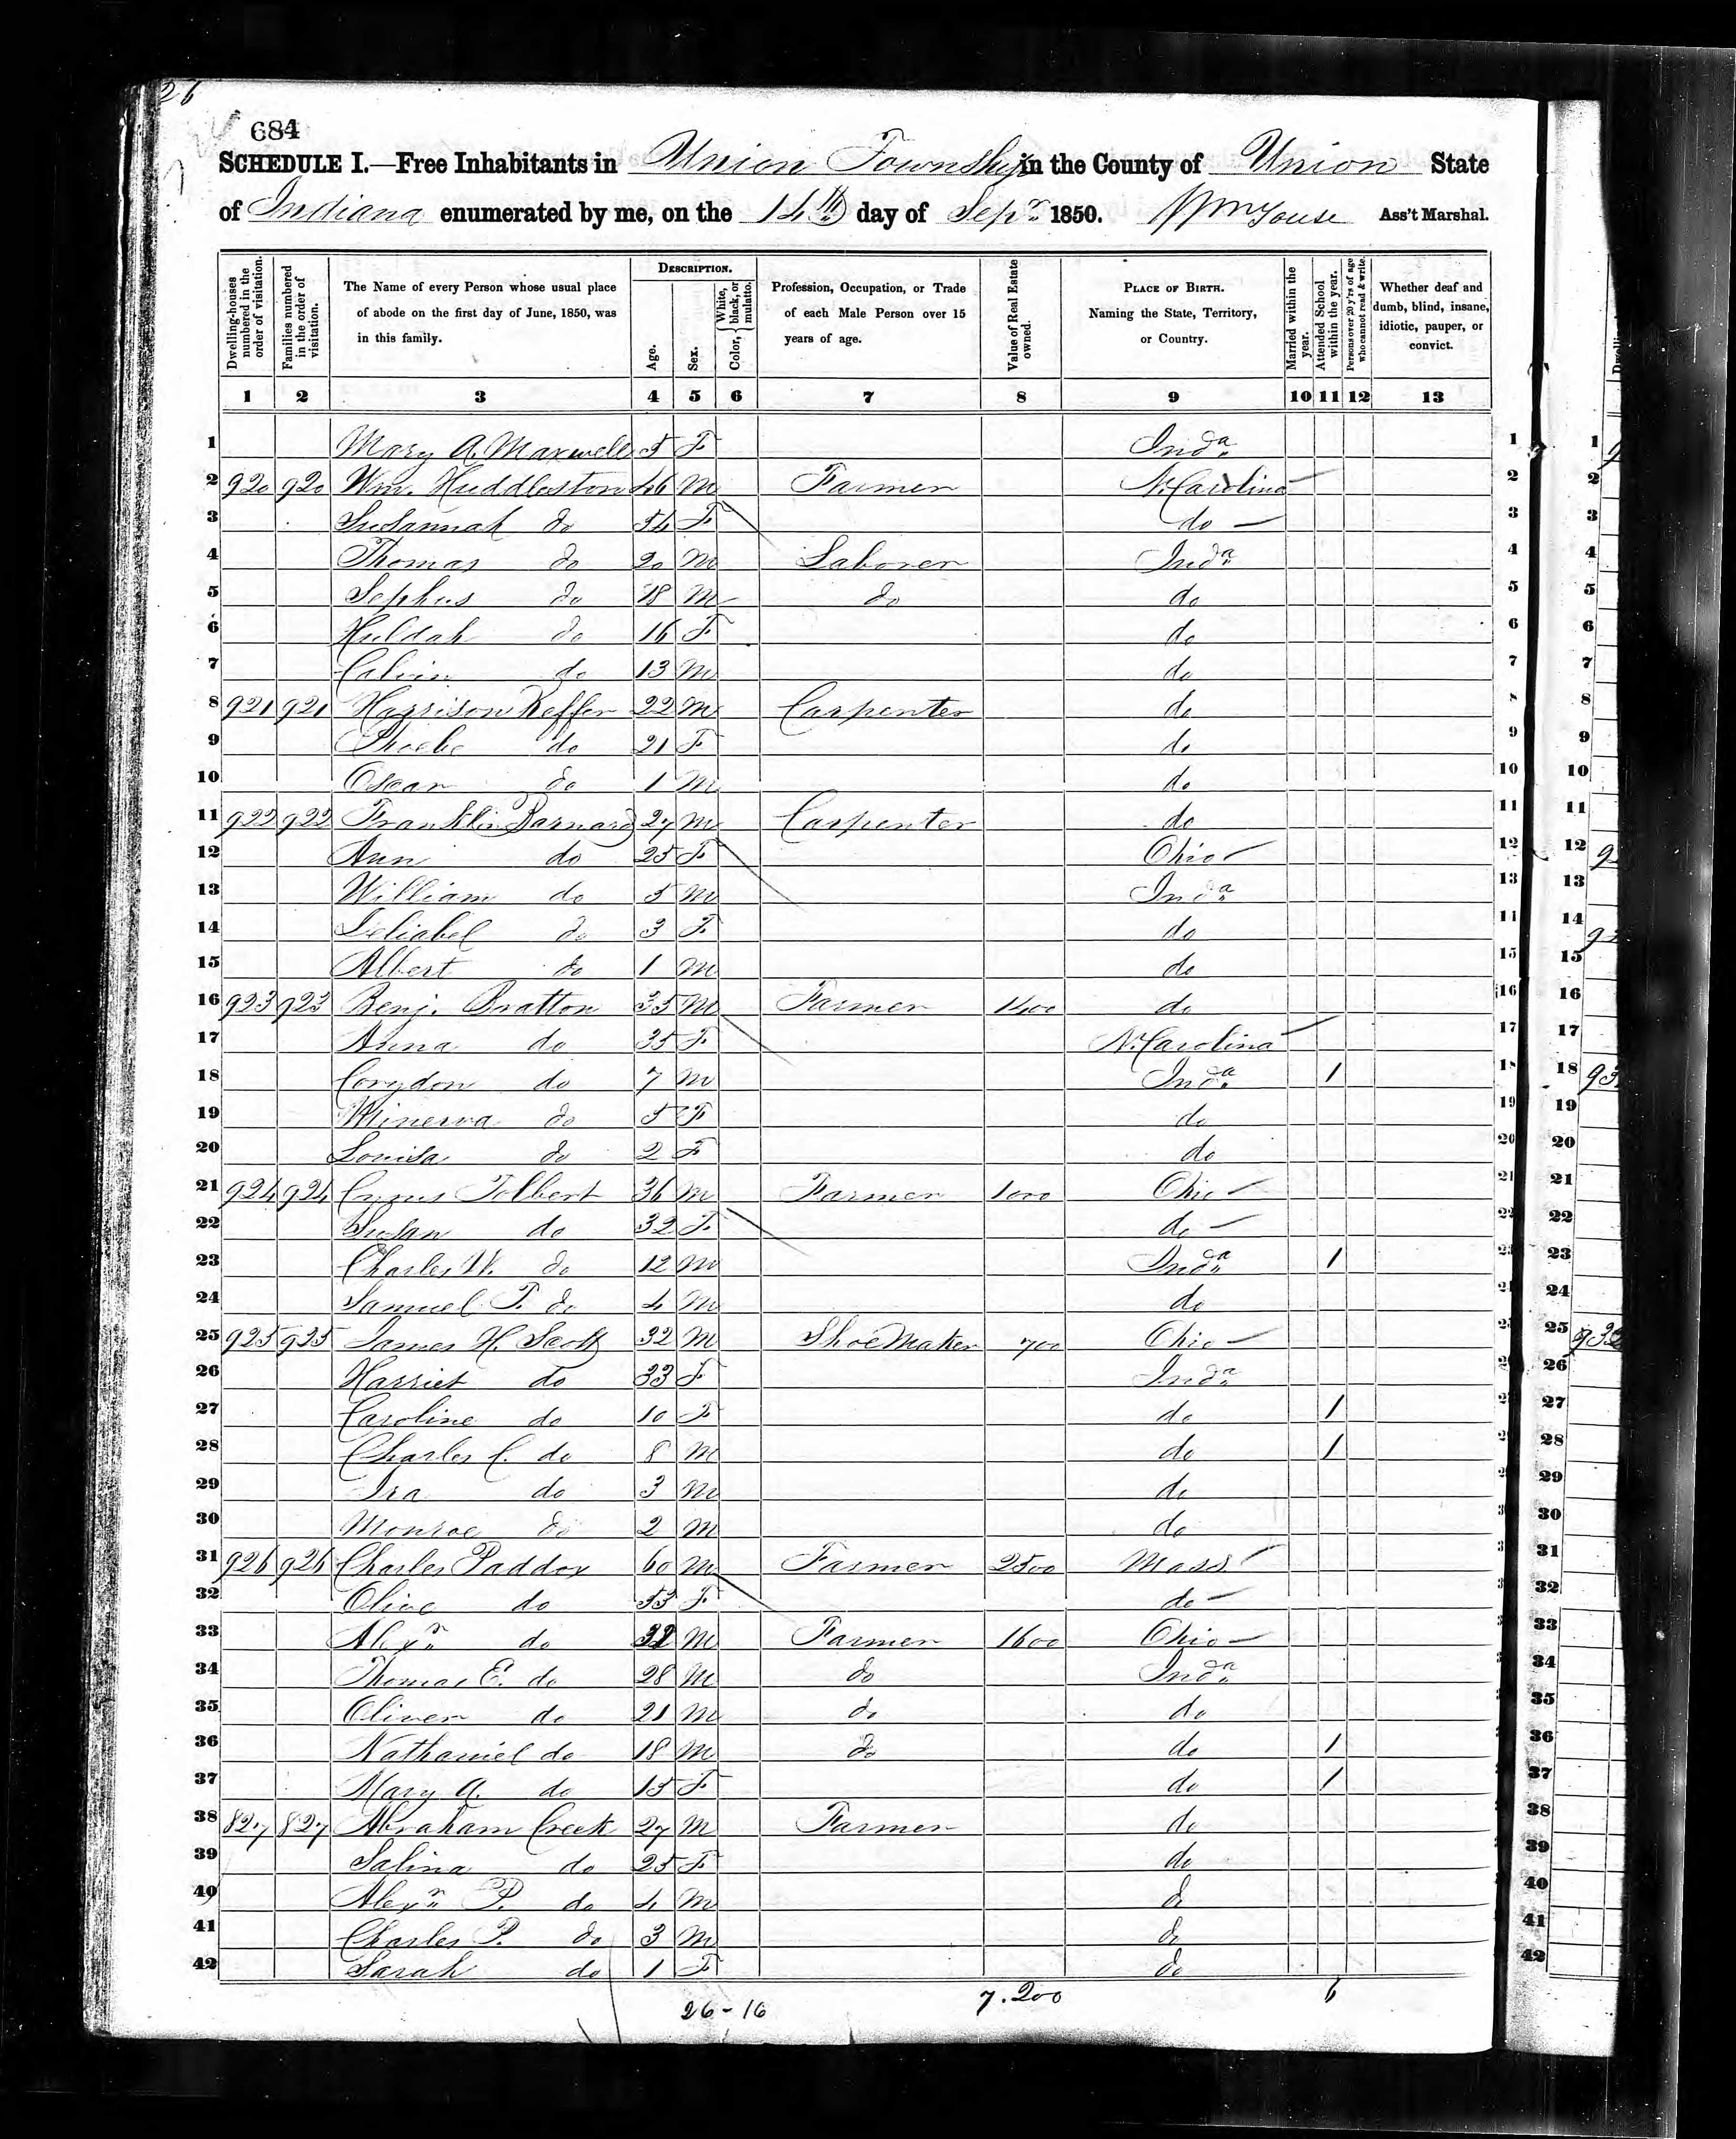 26
684
SCHEDULE I.—Free Inhabitants in Union Township in the County of Union State
of Indiana enumerated by me, on the 14th day of Sepr 1850. Wm Youse Ass't Marshal.
Dwelling-houses numbered in the order of visitation.
Families numbered in the order of visitation.
The Name of every Person whose usual place of abode on the first day of June, 1850, was in this family.
DESCRIPTION.
Age.
Sex.
Color, { White, black, or mulatto.
Profession, Occupation, or Trade of each Male Person over 15 years of age.
Value of Real Estate owned.
PLACE OF BIRTH. Naming the State, Territory, or Country.
Married within the year.
Attended School within the year.
Persons over 20 y'rs of age who cannot read & write.
Whether deaf and dumb, blind, insane, idiotic, pauper, or convict.
1 2 3 4 5 6 7 8 9 10 11 12 13
1 Mary A. Maxwell 5 F Inda 1
2 920 920 Wm. Huddleston 46 M Farmer N. Carolina 2
3 Susannah do 54 F do 3
4 Thomas do 20 M Laborer Inda 4
5 Sephus do 18 M do do 5
6 Huldah do 16 F do 6
7 Calvin do 13 M do 7
8 921 921 Harrison Keffer 22 M Carpenter do 8
9 Phoebe do 21 F do 9
10 Oscar do 1 M do 10
11 922 922 Franklin Barnard 27 M Carpenter do 11
12 Ann do 25 F Ohio 12
13 William do 5 M Inda 13
14 do 3 F do 14
15 Albert do 1 M do 15
16 923 923 Benj. Bratton 35 M Farmer 1400 do 16
17 Anna do 35 F N. Carolina 17
18 Corydon do 7 M Inda 1 18
19 Minerva do 5 F do 19
20 Louisa do 2 F do 20
21 924 924 Cyrus Tolbert 36 M Farmer 1000 Ohio 21
22 Susan do 32 F do 22
23 Charles W. do 12 M Inda 1 23
24 Samuel T. do 4 M do 24
25 925 925 James H. Scott 32 M ShoeMaker 700 Ohio 25
26 Harriet do 33 F Inda 26
27 Caroline do 10 F do 1 27
28 Charles C. do 8 M do 1 28
29 Ira do 3 M do 29
30 Monroe do 2 M do 30
31 926 926 Charles Paddox 60 M Farmer 2500 Mass 31
32 Olive do 53 F do 32
33 Alexr do M Farmer 1600 Ohio 33
34 Thomas E. do 28 M do Inda 34
35 Oliver do 21 M do do 35
36 Nathaniel do 18 M do do 1 36
37 Mary A. do 15 F do 1 37
38 827 827 Abraham Creek 27 M Farmer do 38
39 Salina do 25 F do 39
40 Alexr P. do 4 M do 40
41 Charles P. do 3 M do 41
42 Sarah do 1 F do 42
26-16 7.200 6